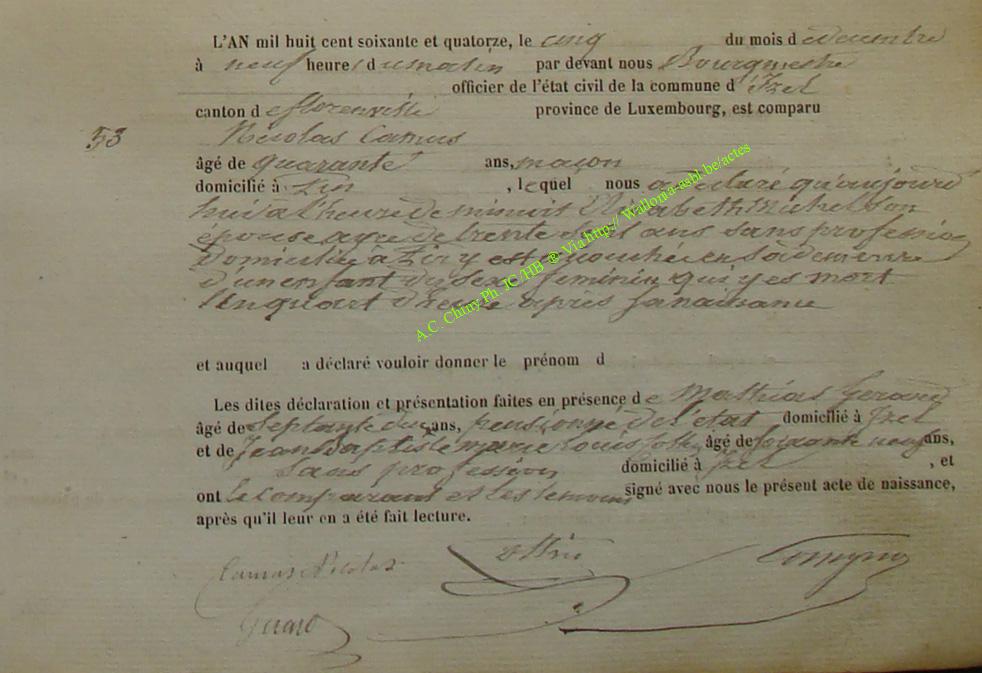 L'AN mil huit cent soixante et quatorze, le cinq du mois d decembre
à neuf heure s du matin par devant nous Bourgmestre
officier de l'état civil de la commune d' Izel
canton de florenville province de Luxembourg, est comparu
53 Nicolas Camus
âgé de quarante ans, maçon
domicilié à , lequel nous a declaré qu'aujourd
hui a l'heure de minuit Elisabeth Michel son
épouse agée de trente ans sans profession
domiciliée a y est accouchée en sa demeure
d'un enfant du sexe feminin qui y es mort
un quart d'heure après sa naissance
et auquel a déclaré vouloir donner le prénom d
Les dites déclaration et présentation faites en présence de Mathias Gerard
âgé de septante ans, pensionné de l'état domicilié à Izel
et de Jean Baptiste Marie Louis âgé de soixante neuf ans,
sans profession domicilié à Izel , et
ont le comparant et les temoins signé avec nous le présent acte de naissance,
après qu'il leur en a été fait lecture.
Camus Nicolas
Gerard
A.C. Chiny Ph. JC /HB ® Via http:// Wallonia-asbl.be/actes